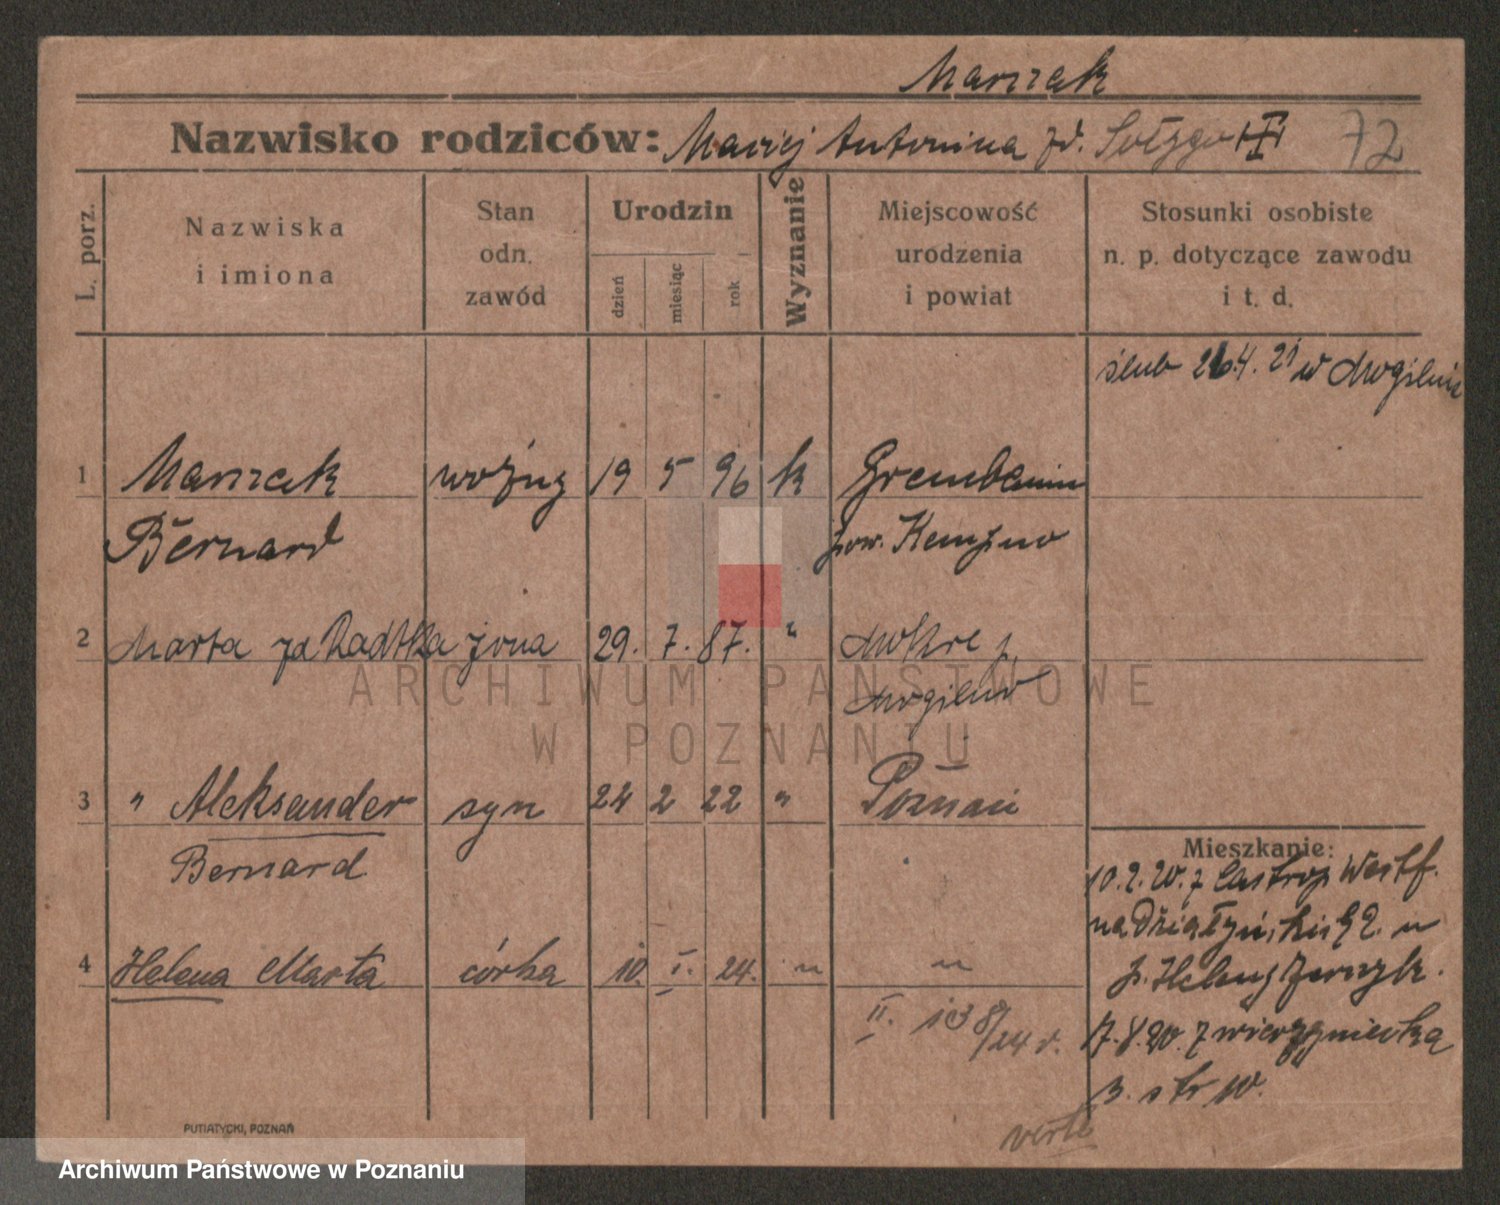 Marszak
Nazwisko rodziców: Maciej Antonina zd. 72
L. porz.
Nazwiska i imiona
Stan odn. zawód
Urodzin
dzień miesiąc rok
Wyznanie
Miejscowość urodzenia i powiat
Stosunki osobiste n. p. dotyczące zawodu i t. d.
ślub 26.4.21 w Mogilnie
1 Marszak woźny 19 5 96 k Grembanin
Bernard pow. Kempno
2 Marta zd Radtka żona 29. 7. 87. " Mokre p.
Mogilno
3 " Aleksander syn 24 2 22 " Poznań
Bernard
Mieszkanie:
10.2.20. z Castrop Westf.
na Działyńskich 2. u
4 Helena Marta córka 10. I. 24. " "
p. Heleny
II.
17.8.20. z
3. str 10.
verte
PUTIATYCKI, POZNAŃ
ARCHIWUM PAŃSTWOWE
W POZNANIU
Archiwum Państwowe w Poznaniu